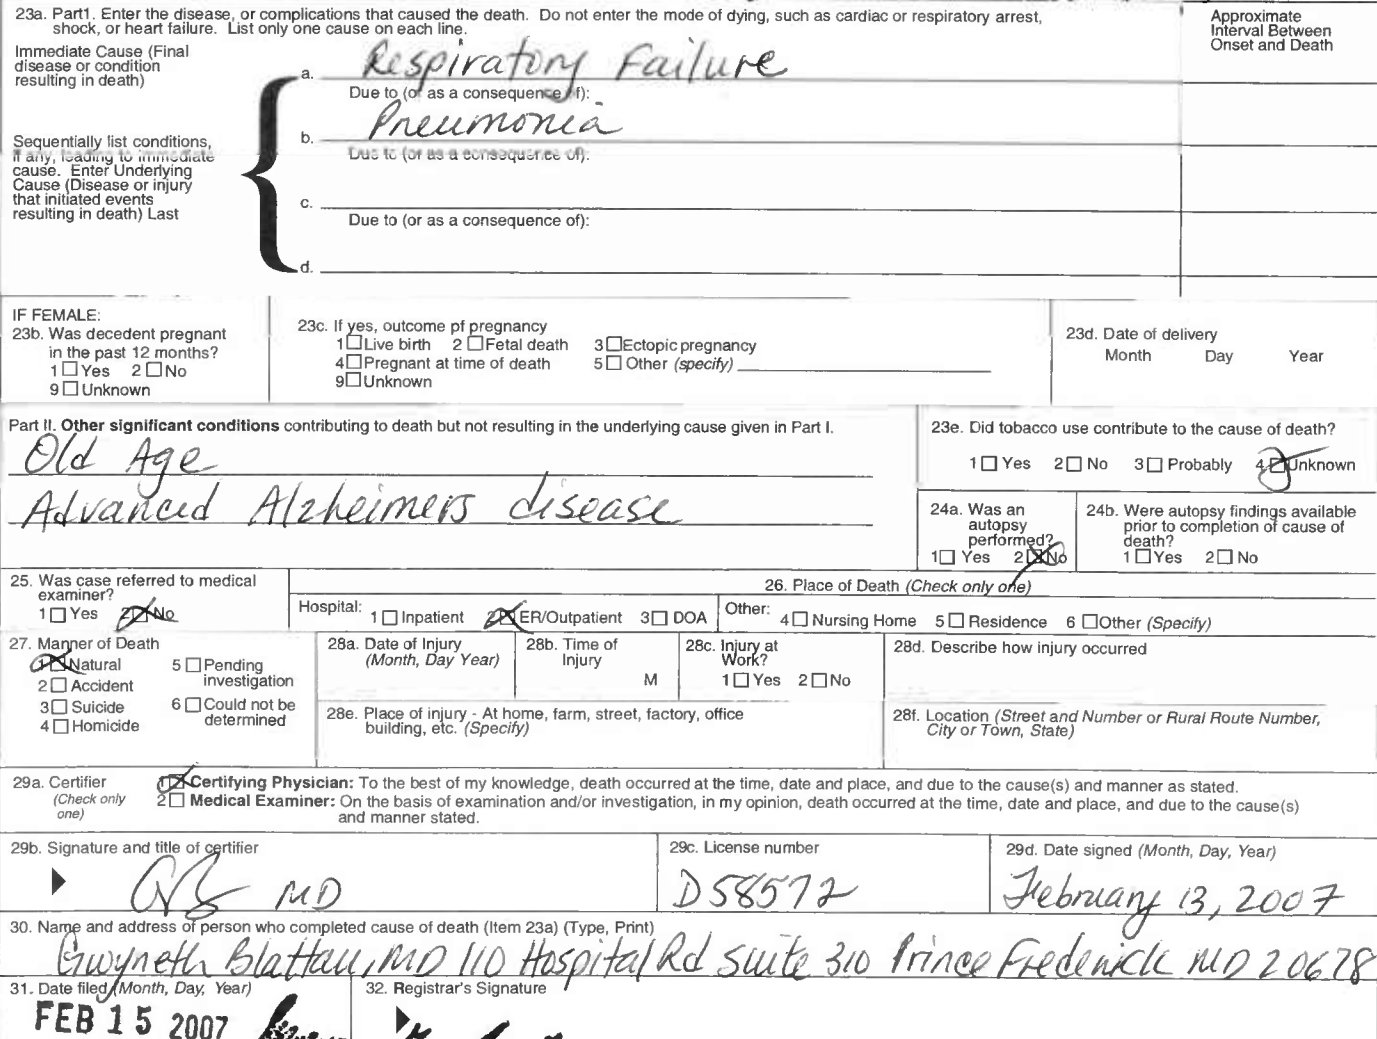 23a. Part1. Enter the disease, or complications that caused the death. Do not enter the mode of dying, such as cardiac or respiratory arrest,
shock, or heart failure. List only one cause on each line.
Approximate
Interval Between
Onset and Death
Immediate Cause (Final
disease or condition
resulting in death)
a. Respiratory Failure
Due to (or as a consequence of):
b. Pneumonia
Due to (or as a consequence of):
Sequentially list conditions,
if any, leading to immediate
cause. Enter Underlying
Cause (Disease or injury
that initiated events
resulting in death) Last
c.
Due to (or as a consequence of):
d.
IF FEMALE:
23b. Was decedent pregnant
in the past 12 months?
1 ☐ Yes 2 ☐ No
9 ☐ Unknown
23c. If yes, outcome pf pregnancy
1 ☐ Live birth 2 ☐ Fetal death 3 ☐ Ectopic pregnancy
4 ☐ Pregnant at time of death 5 ☐ Other (specify)
9 ☐ Unknown
23d. Date of delivery
Month Day Year
Part II. Other significant conditions contributing to death but not resulting in the underlying cause given in Part I.
Old Age
Advanced Alzheimers disease
23e. Did tobacco use contribute to the cause of death?
1 ☐ Yes 2 ☐ No 3 ☐ Probably 4 ☒ Unknown
24a. Was an
autopsy
performed?
1 ☐ Yes 2 ☒ No
24b. Were autopsy findings available
prior to completion of cause of
death?
1 ☐ Yes 2 ☐ No
25. Was case referred to medical
examiner?
1 ☐ Yes 2 ☒ No
26. Place of Death (Check only one)
Hospital: 1 ☐ Inpatient 2 ☒ ER/Outpatient 3 ☐ DOA
Other: 4 ☐ Nursing Home 5 ☐ Residence 6 ☐ Other (Specify)
27. Manner of Death
1 ☒ Natural
2 ☐ Accident
3 ☐ Suicide
4 ☐ Homicide
5 ☐ Pending
investigation
6 ☐ Could not be
determined
28a. Date of Injury
(Month, Day Year)
28b. Time of
Injury
M
28c. Injury at
Work?
1 ☐ Yes 2 ☐ No
28d. Describe how injury occurred
28e. Place of injury - At home, farm, street, factory, office
building, etc. (Specify)
28f. Location (Street and Number or Rural Route Number,
City or Town, State)
29a. Certifier
(Check only
one)
1 ☒ Certifying Physician: To the best of my knowledge, death occurred at the time, date and place, and due to the cause(s) and manner as stated.
2 ☐ Medical Examiner: On the basis of examination and/or investigation, in my opinion, death occurred at the time, date and place, and due to the cause(s)
and manner stated.
29b. Signature and title of certifier
MD
29c. License number
D58572
29d. Date signed (Month, Day, Year)
February 13, 2007
30. Name and address of person who completed cause of death (Item 23a) (Type, Print)
Gwyneth Blattau, MD 110 Hospital Rd Suite 310 Prince Frederick MD 20678
31. Date filed (Month, Day, Year)
FEB 15 2007
32. Registrar's Signature